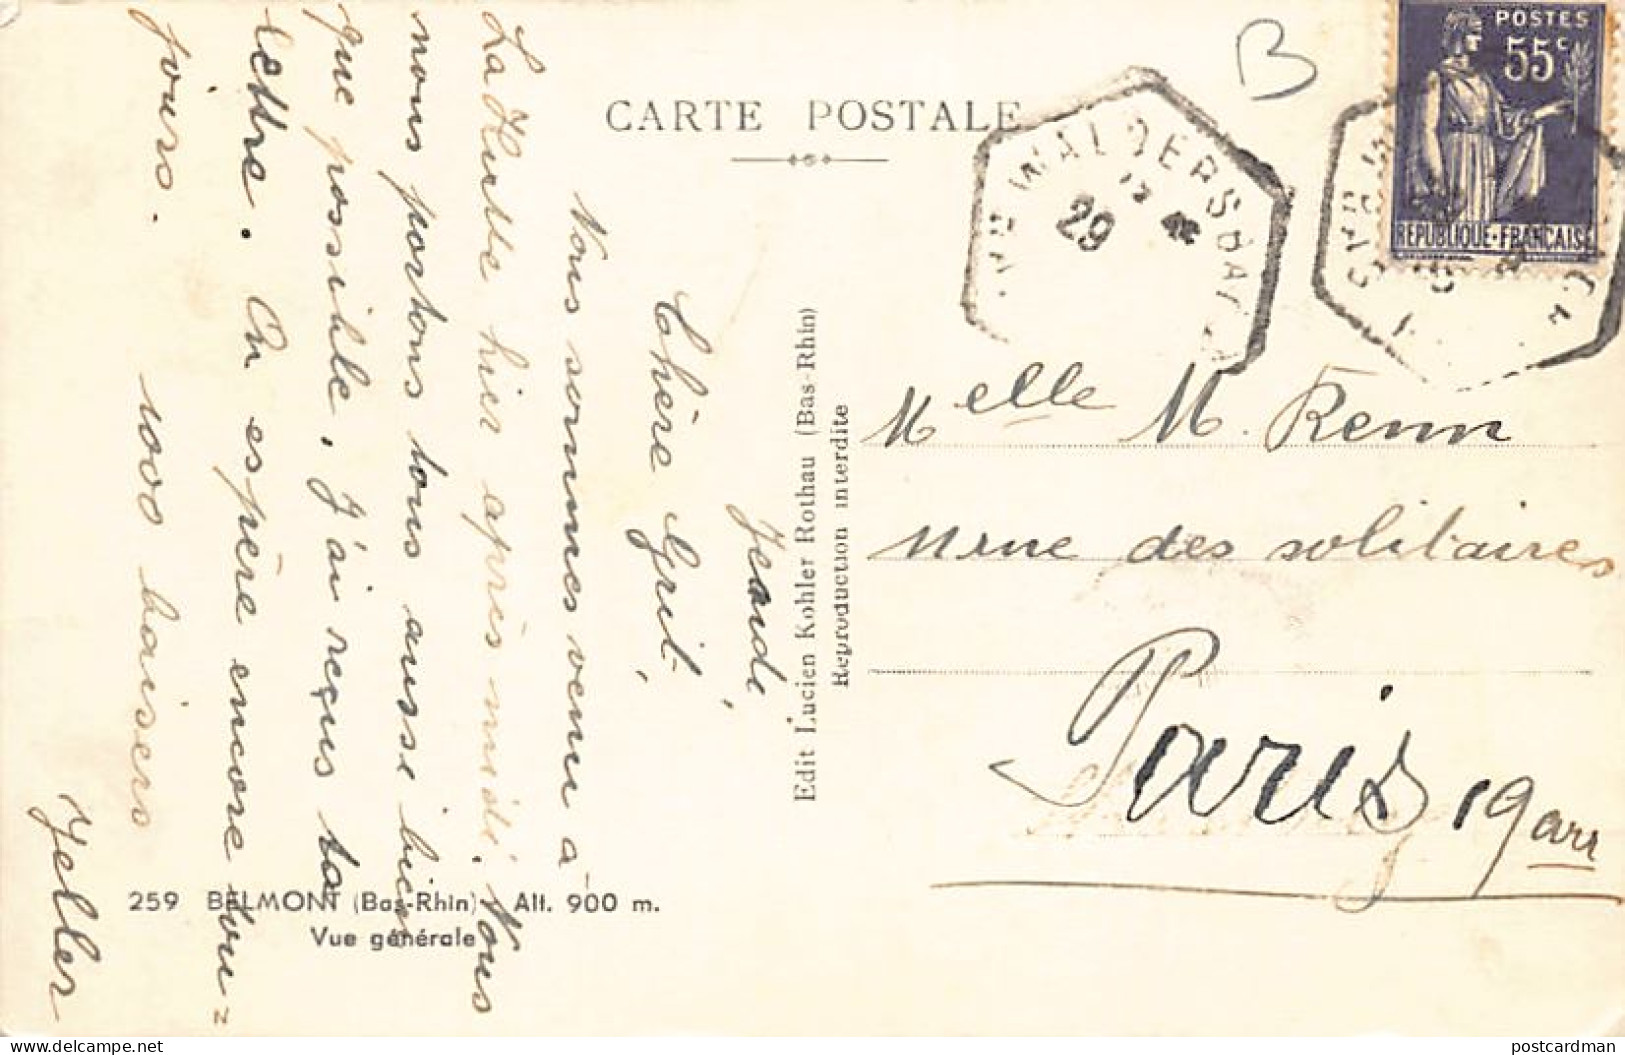 CARTE POSTALE
B
POSTES
55c
REPUBLIQUE-FRANÇAISE
WALDERSBACH
29
Jeudi,
Chère Grit,
Nous sommes venu à
La Hutte hier après midi. Nous
nous portons tous aussi bien
que possible. J'ai reçus ta
lettre. On espère encore tou=
jours.
1000 baisers
Jeller
Edit Lucien Kohler Rothau (Bas-Rhin)
Reproduction interdite
Melle M. Renn
rue des solitaires
Paris 19 arr
259 BELMONT (Bas-Rhin) Alt. 900 m.
Vue générale
delcampe.net
postcardman